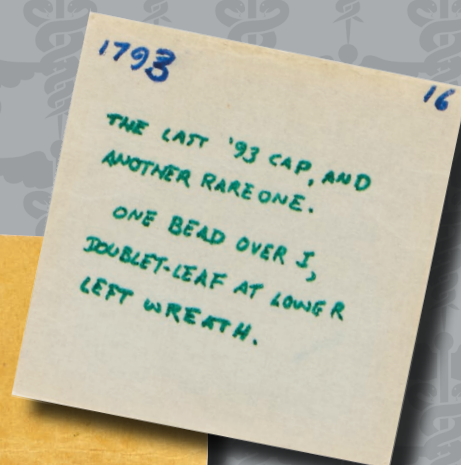 1793 16
THE LAST '93 CAP, AND
ANOTHER RARE ONE.
ONE BEAD OVER I,
DOUBLET-LEAF AT LOWER
LEFT WREATH.